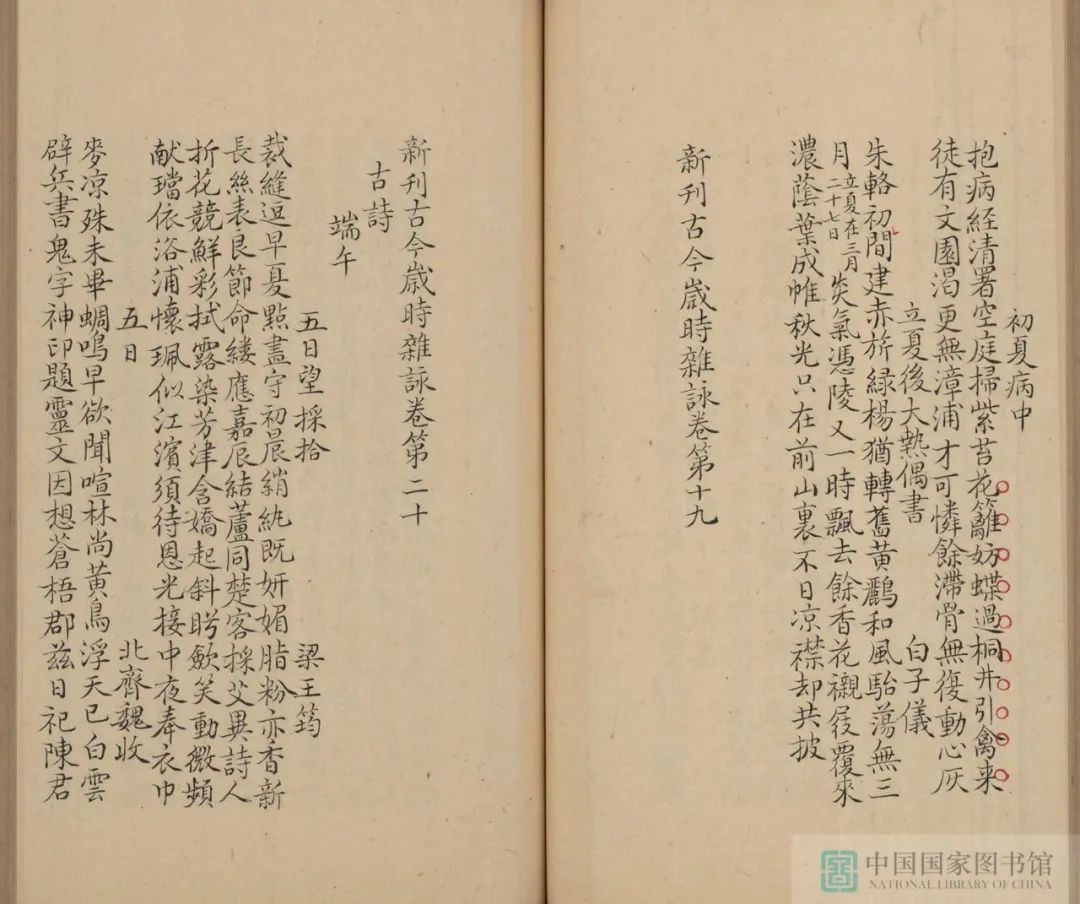 初夏病中
抱病経清署空庭掃紫苔花籬妨蝶過桐井引禽来
徒有文園渴更無漳浦才可憐餘滯骨無復動心灰
立夏後大熱偶書 白子儀
朱輅初間建赤旂緑楊猶轉舊黃鸝和風駘蕩無三
月立夏在三月二十七日炎氣憑陵又一時飄去餘香花襯屐覆來
濃蔭葉成帷秋光只在前山裏不日凉襟却共披
新刊古今歲時雜詠卷第十九
新刊古今歲時雜詠卷第二十
古詩
端午
五日望採拾 梁王筠
裁縫逗早夏點畫守初晨綃紈既妍媚脂粉亦香新
長絲表良節命縷應嘉辰結蘆同楚客採艾異詩人
折花競鮮彩拭露染芳津含嬌起斜盻歛笑動微嚬
献璫依洛浦懷珮似江濱須待恩光接中夜奉衣巾
五日 北齊魏收
麥凉殊未畢蜩鳴早欲聞喧林尚黃鳥浮天已白雲
辟兵書鬼字神印題靈文因想蒼梧郡兹日祀陳君
中国国家图书馆
NATIONAL LIBRARY OF CHINA